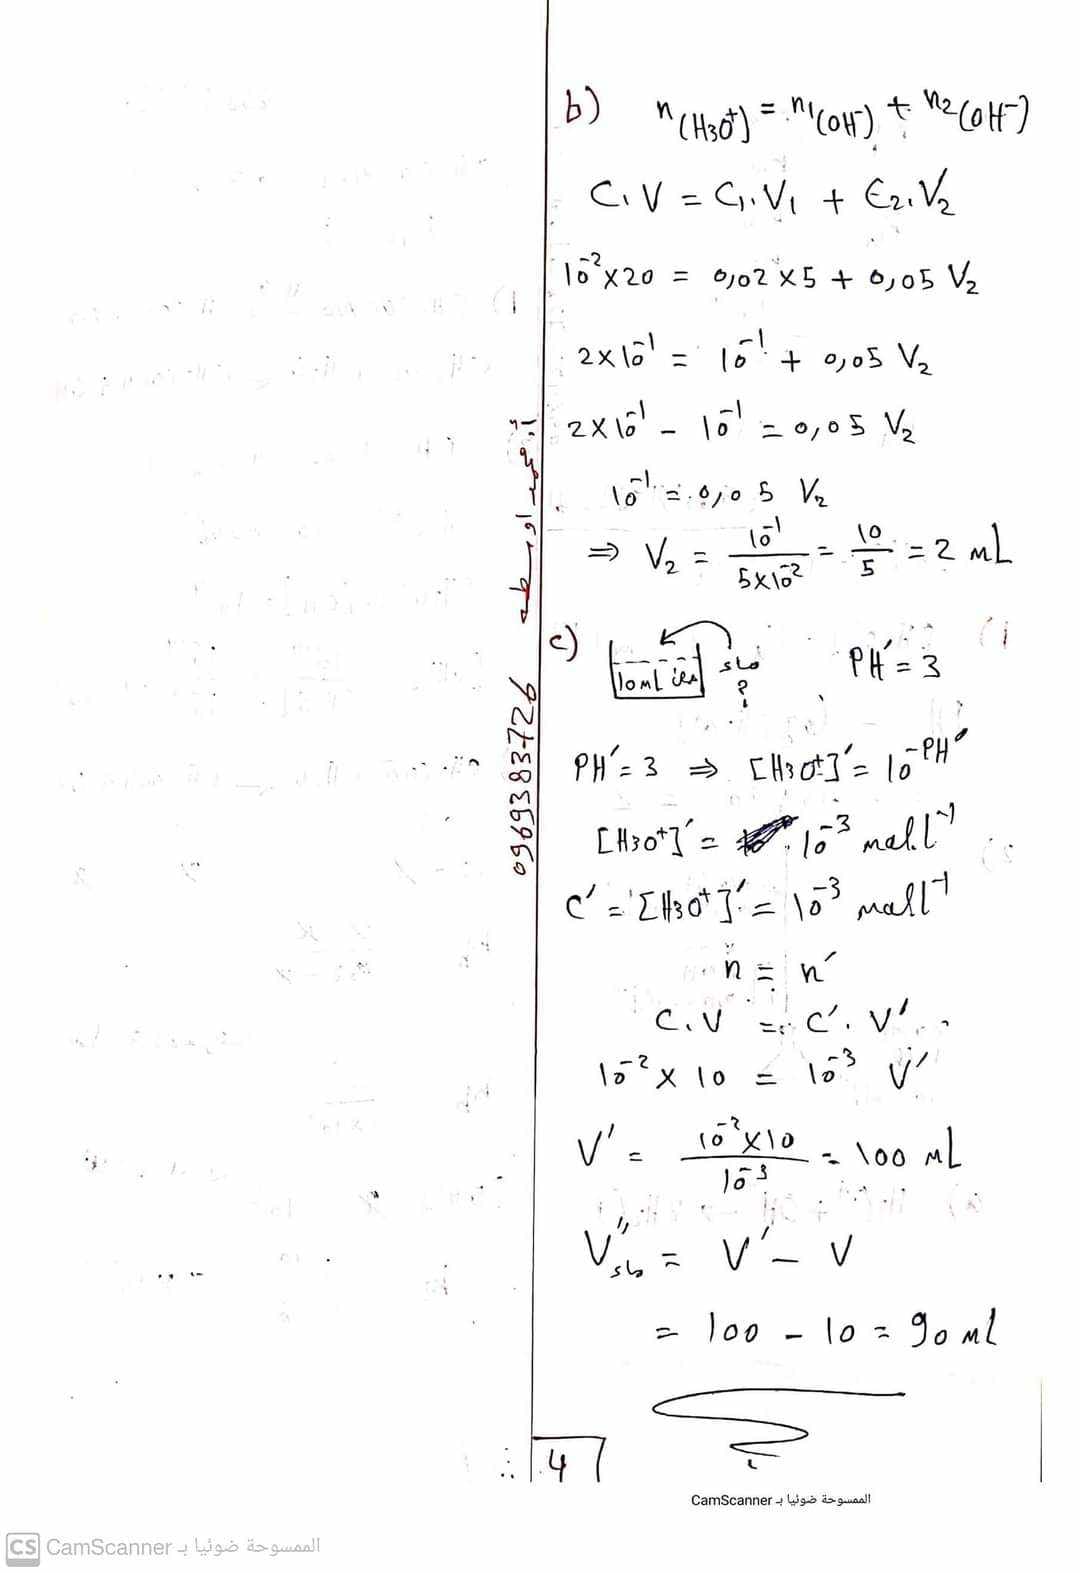 b) n(H3O+) = n1(OH-) + n2(OH-)
C.V = C1.V1 + C2.V2
10^-2 × 20 = 0,02 × 5 + 0,05 V2
2×10^-1 = 10^-1 + 0,05 V2
2×10^-1 - 10^-1 = 0,05 V2
10^-1 = 0,05 V2
⇒ V2 = 10^-1 / 5×10^-2 = 10/5 = 2 mL
c) 10mL ماء ? PH' = 3
PH' = 3 ⇒ [H3O+]' = 10^-PH'
[H3O+]' = 10^-3 mol.l^-1
C' = [H3O+]' = 10^-3 mol l^-1
n = n'
C.V = C'.V'
10^-2 × 10 = 10^-3 V'
V' = 10^-2×10 / 10^-3 = 100 mL
V''ماء = V' - V
= 100 - 10 = 90 ml
4
0969383726
الممسوحة ضوئيا بـ CamScanner
CS الممسوحة ضوئيا بـ CamScanner